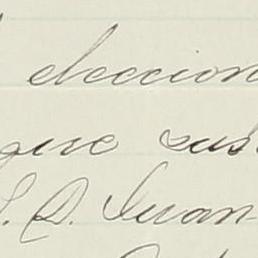 eleccion
que sus
S. D. Juan